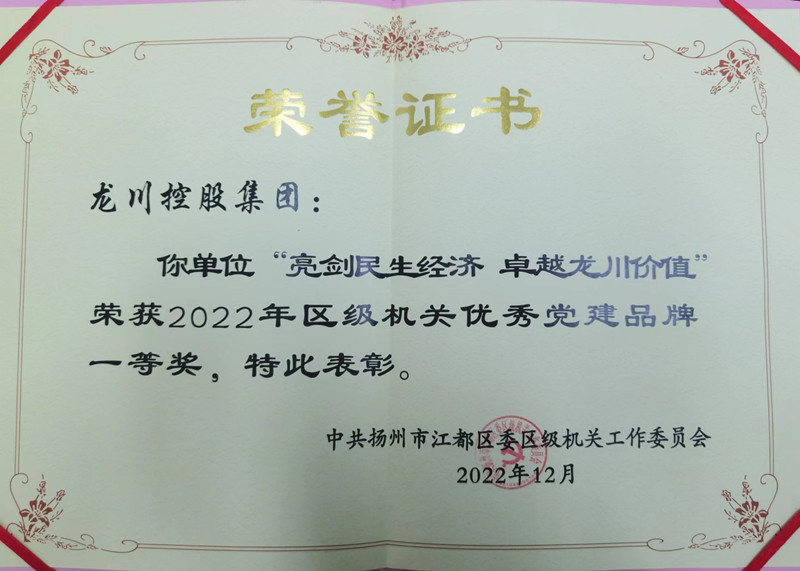 荣誉证书
龙川控股集团：
你单位“亮剑民生经济 卓越龙川价值”
荣获2022年区级机关优秀党建品牌
一等奖，特此表彰。
中共扬州市江都区委区级机关工作委员会
2022年12月